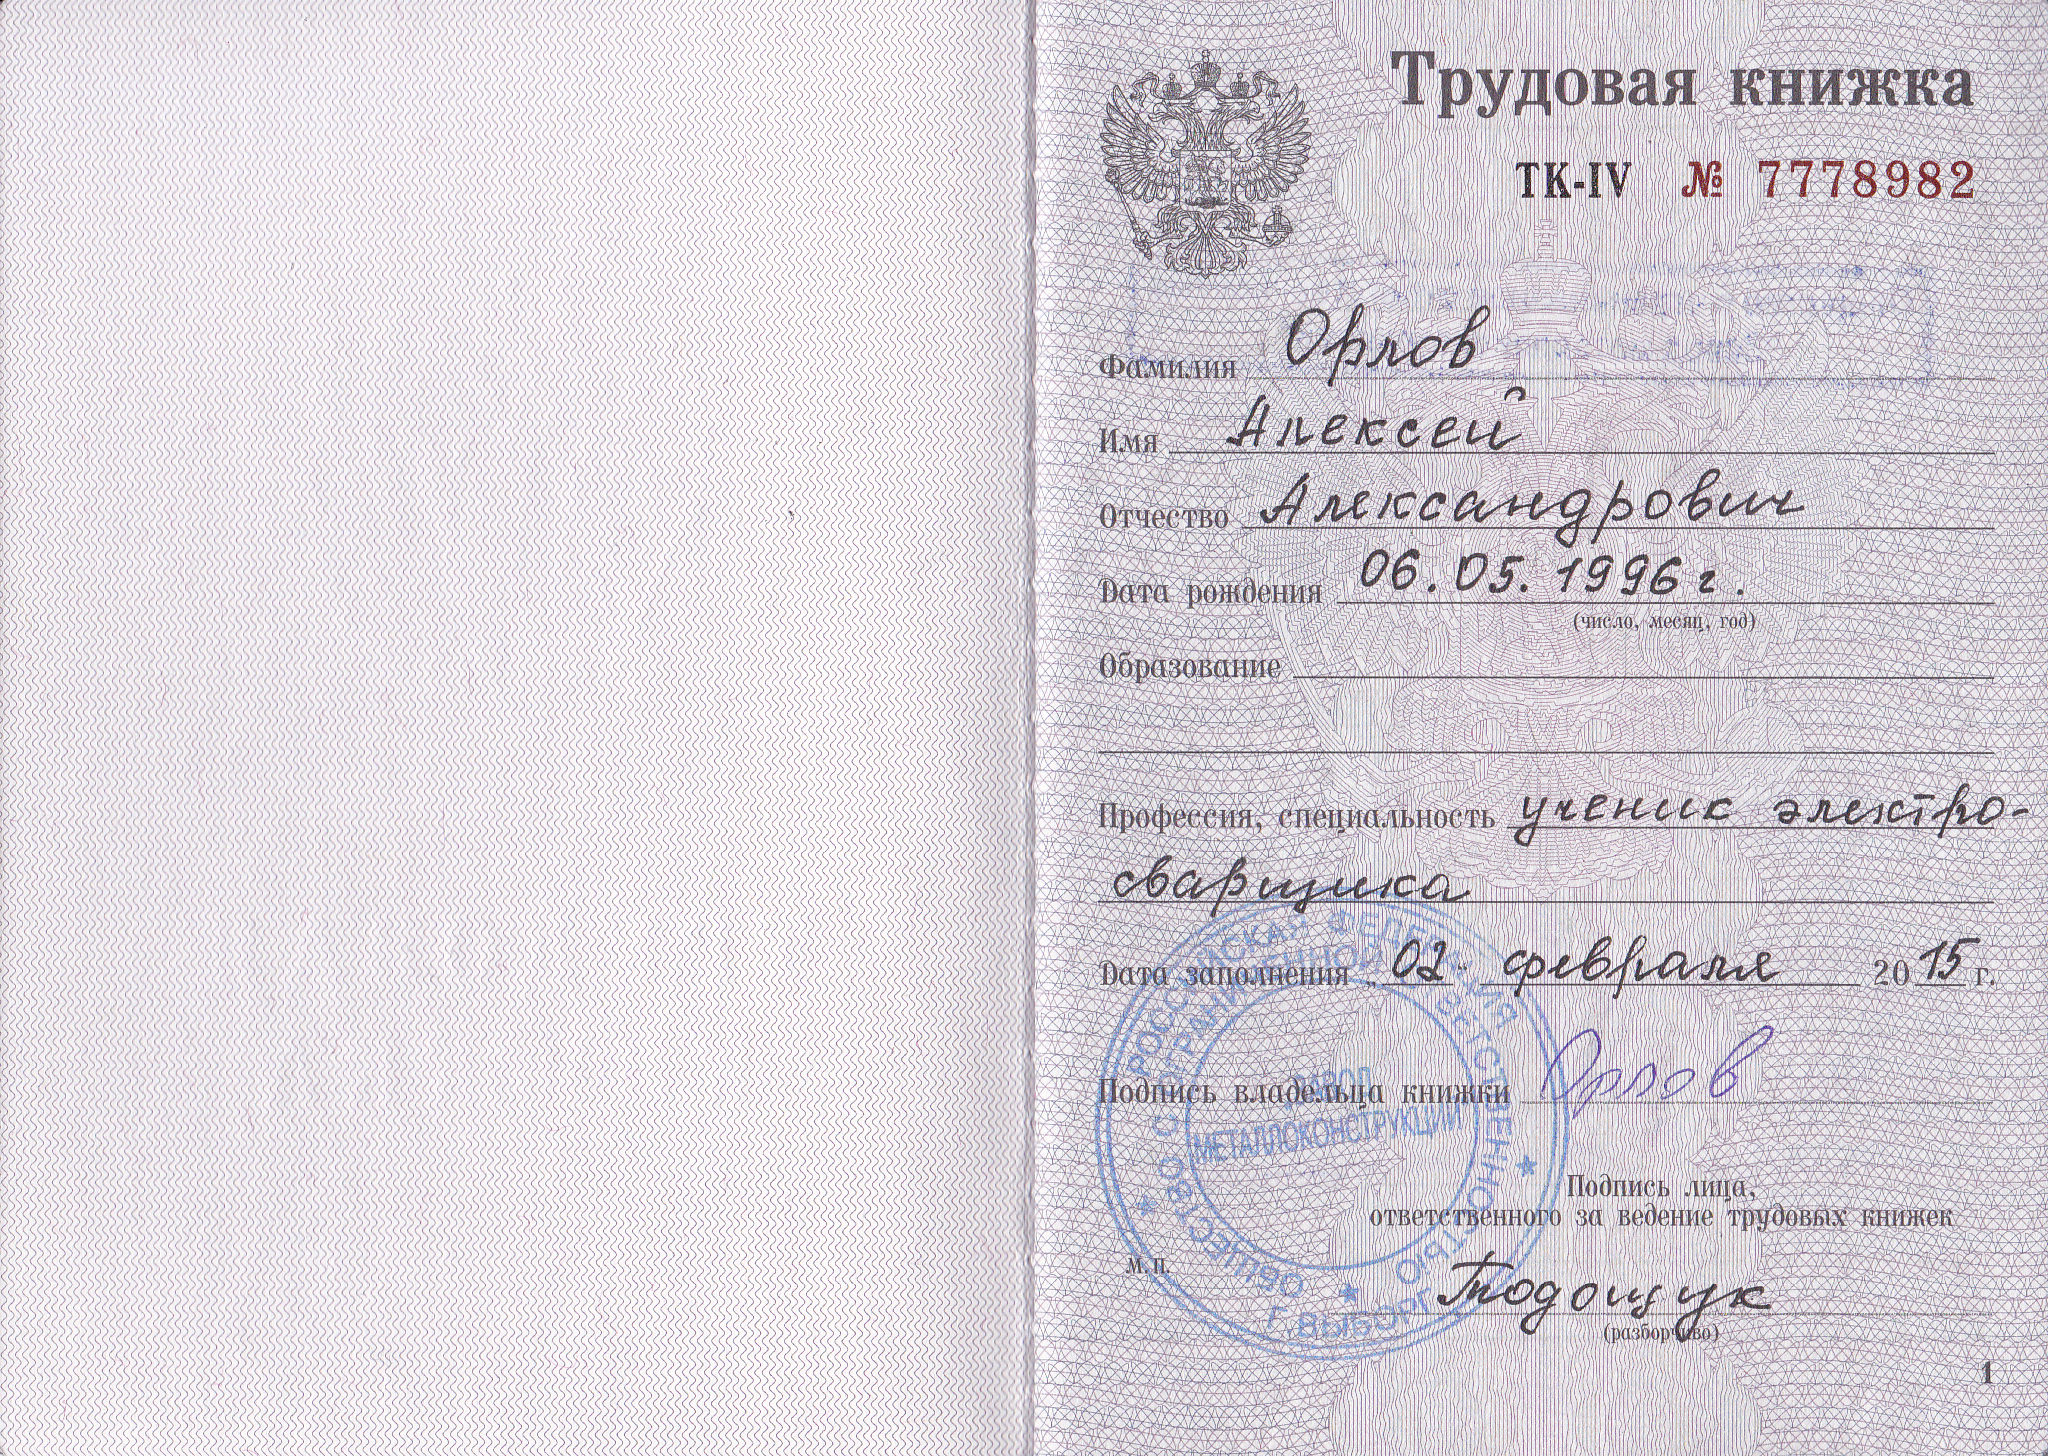 Трудовая книжка
ТК-IV № 7778982
Фамилия Орлов
Имя Алексей
Отчество Александрович
Дата рождения 06.05.1996 г.
(число, месяц, год)
Образование
Профессия, специальность ученик электро-
сварщика
Дата заполнения „ 02 “ февраля 20 15 г.
Подпись владельца книжки Орлов
Подпись лица,
ответственного за ведение трудовых книжек
М.П.
(разборчиво)
1
РОССИЙСКАЯ ФЕДЕРАЦИЯ
Г. ВЫБОРГ
ОБЩЕСТВО С ОГРАНИЧЕННОЙ ОТВЕТСТВЕННОСТЬЮ
ЗАВОД
МЕТАЛЛОКОНСТРУКЦИЙ